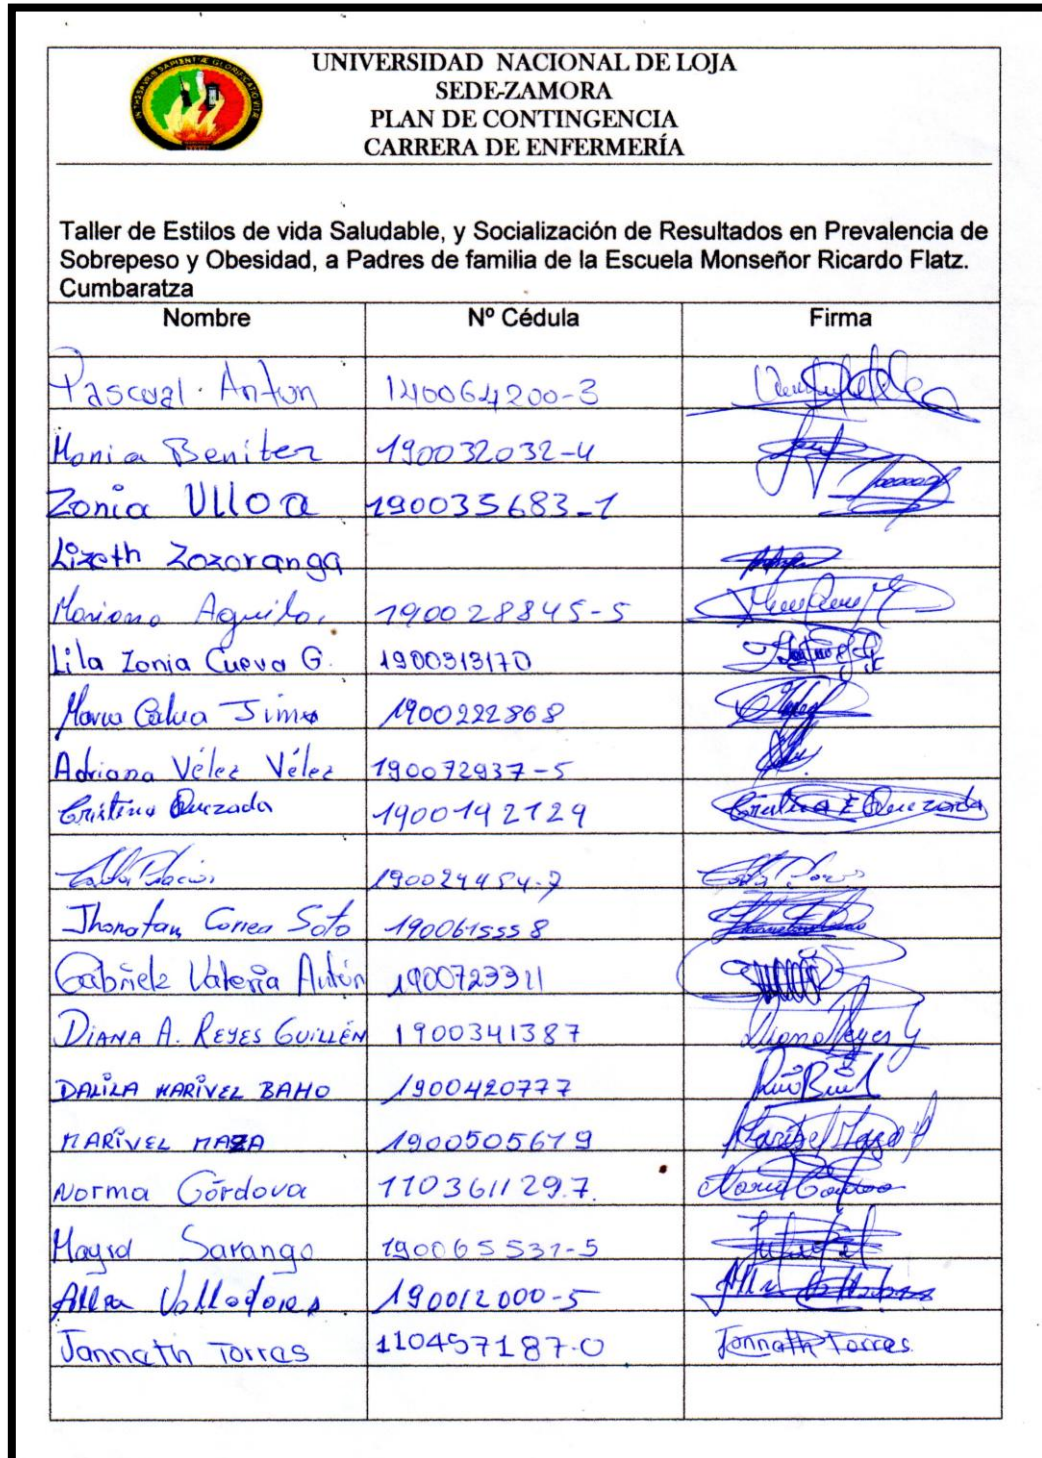 UNIVERSIDAD NACIONAL DE LOJA
SEDE-ZAMORA
PLAN DE CONTINGENCIA
CARRERA DE ENFERMERÍA
Taller de Estilos de vida Saludable, y Socialización de Resultados en Prevalencia de
Sobrepeso y Obesidad, a Padres de familia de la Escuela Monseñor Ricardo Flatz.
Cumbaratza
Nombre Nº Cédula Firma
Pascual Antun 140064200-3
Benitez 190032032-4
Zonia Ulloa 190035683-1
Lizeth Zozoranga
Aguilar 190028845-5
Lila Zonia Cueva G. 1900313170
1900222868
Adriana Vélez Vélez 190072937-5
Cristina Quezada 1900192129 Cristina E Quezada
Jhonatan Correa Soto 1900615558
Valeria Antún 1900723311
DIANA A. REYES GUILLÉN 1900341387 Diana Reyes G
DALILA MARIVEL BAHO 1900420777
MARIVEL MAZA 1900505619 Maribel Maza
Norma Córdova 110361129.7.
Sarango 190065531-5
190012000-5
Janneth Torres 110457187-0 Janneth Torres